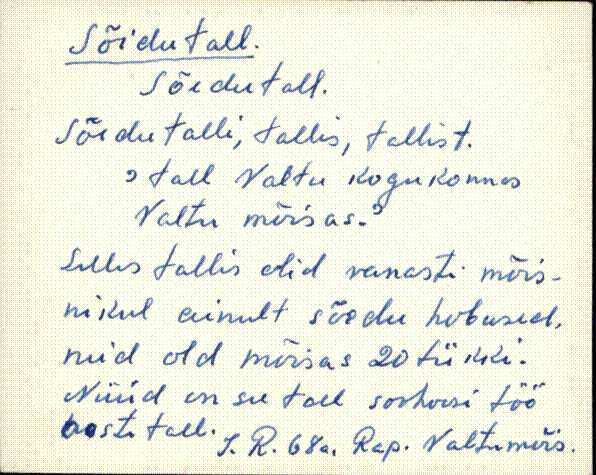 Sõidutall.
Sõidutall.
Sõidutalli, tallis, tallist.
? tall Valtu kogukonnas
Valtu mõisas.?
Selles tallis olid vanasti mõis-
nikul ainult sõidu hobused,
neid old mõisas 20 tükki.
Nüüd on see tall sovhoosi töö
hoste tall. J. R. 68a. Rap. Valtu mõis.